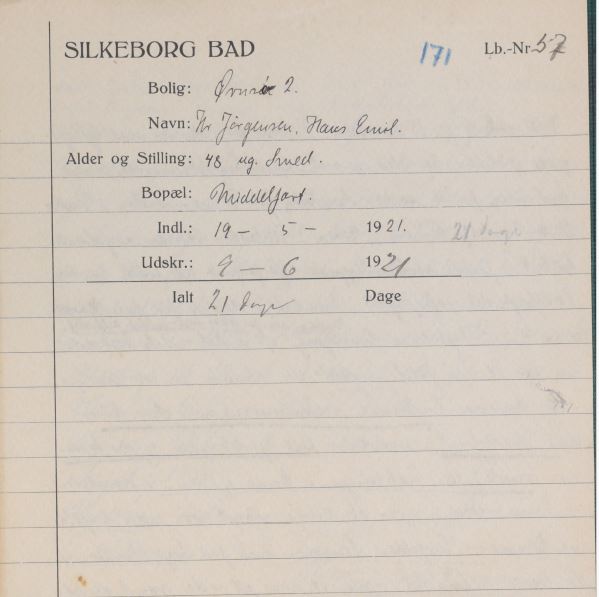 SILKEBORG BAD 171 Lb.-Nr 57
Bolig: 2.
Navn: Hr Jørgensen, Hans Emil.
Alder og Stilling: 48 ug. Smed.
Bopæl: Middelfart.
Indl.: 19 - 5 - 1921. 21 Dage
Udskr.: 9 - 6 1921
Ialt 21 Dage Dage